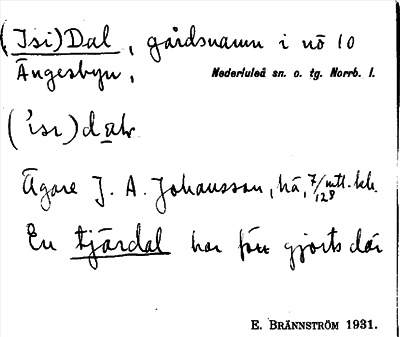 (Isi)Dal, gårdsnamn i nö 10
Ängesbyn,
Nederluleå sn. o. tg. Norrb. l.
('isı)dɑlv
Ägare J. A. Johansson, hä, 7/128 mtl. kh.
En tjärdal har förr gjorts där
E. BRÄNNSTRÖM 1931.